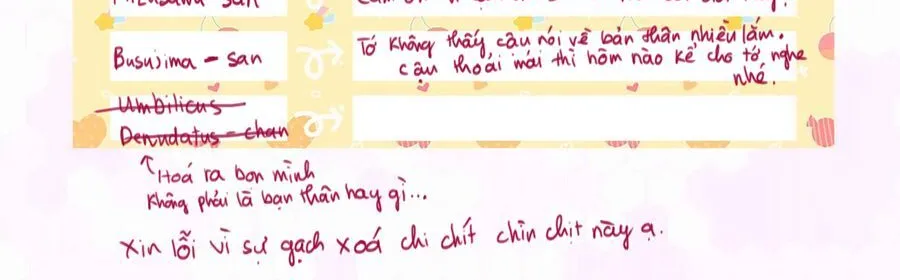 Busujima - san
Tớ không thấy cậu nói về bản thân nhiều lắm.
Cậu thoải mái thì hôm nào kể cho tớ nghe
nhé.
Umbilicus
Denudatus - chan
Hoá ra bọn mình
Không phải là bạn thân hay gì...
Xin lỗi vì sự gạch xoá chi chít chìn chịt này ạ.